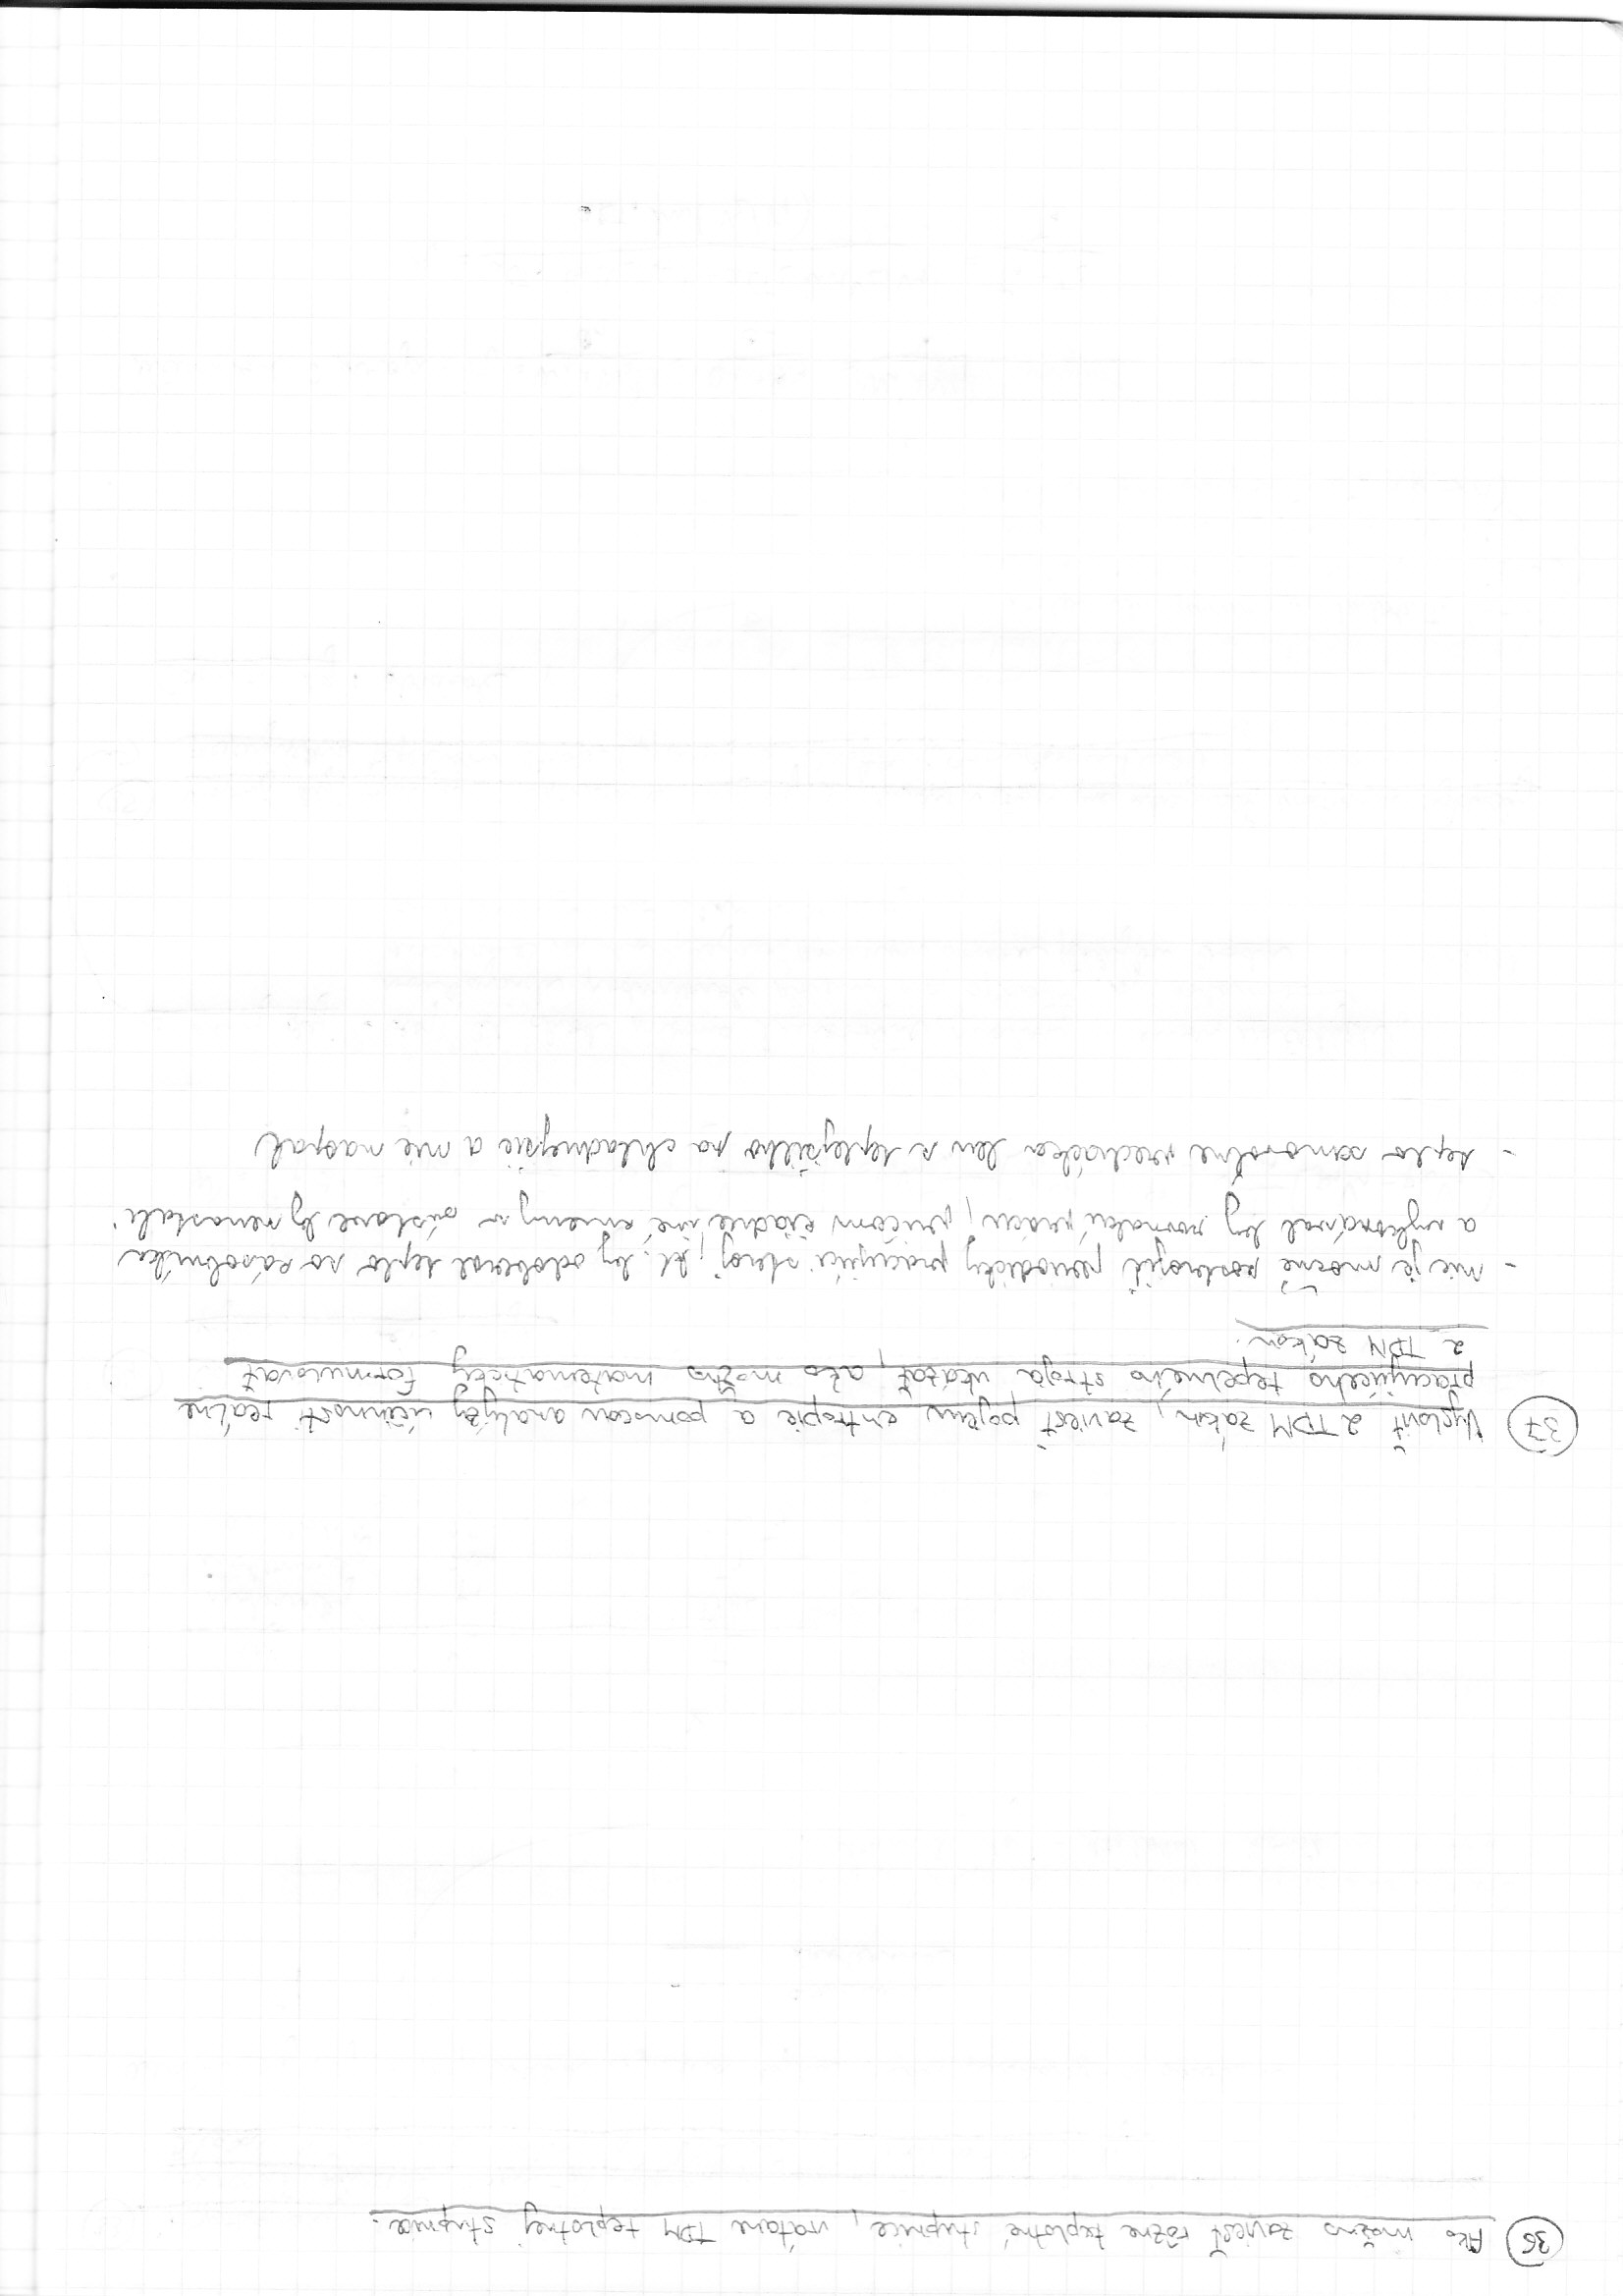 36 Ako možno zaviesť rôzne teplotné stupnice, vrátane TDM teplotnej stupnice.
37 Vysloviť 2 TDM zákon, zaviesť pojem entropie a pomocou analýzy účinnosti reálne
pracujúceho tepelného stroja ukázať, ako možno matematicky formulovať
2 TDM zákon.
- nie je možné zostrojiť periodicky pracujúci stroj, kt. by odoberal teplo zo zásobníka
a vykonával by rovnakú prácu, pričom žiadne iné zmeny v sústave by nenastali.
- teplo samovoľne prechádza len z teplejšieho na chladnejšie a nie naopak